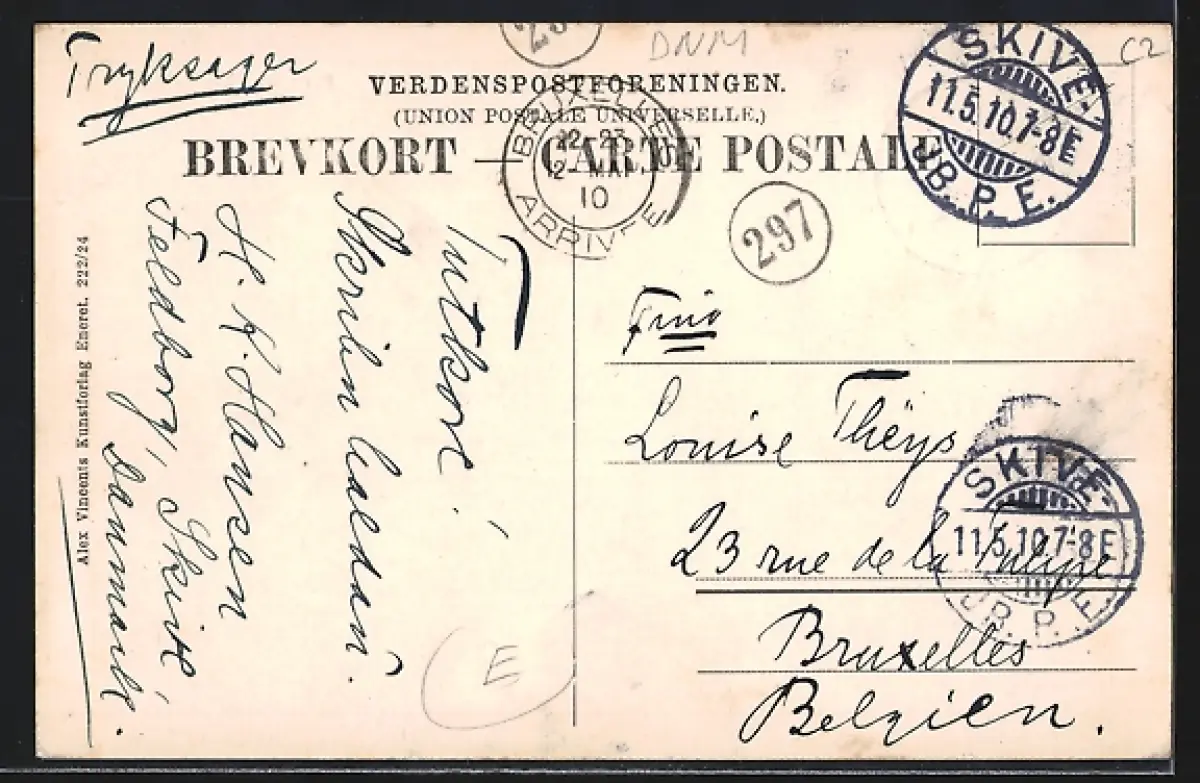 Tryksager
VERDENSPOSTFORENINGEN.
(UNION POSTALE UNIVERSELLE.)
BREVKORT — CARTE POSTALE
DNM
C2
SKIVE
11.5.10.7-8E
JB.P.E.
BRUXELLES
12-23
12-MAI
10
ARRIVEE
297
Louise Thëys
23 rue de la Tulipe
Bruxelles
Belgien.
SKIVE
11.5.10.7-8E
JB.P.E.
H. K. Hansen
Feldborg, Skive,
Danmark.
E
Alex Vincents Kunstforlag Eneret. 222/24